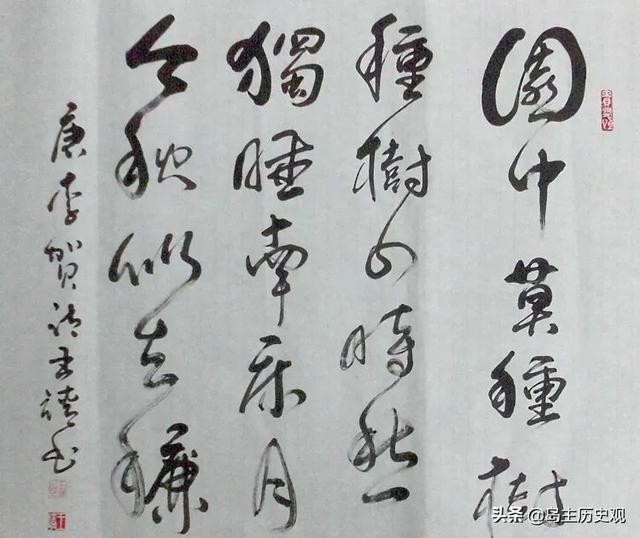 園中莫種樹
種樹四時愁
獨睡南床月
今秋似去
唐李賀詩
头条 @岛主历史观